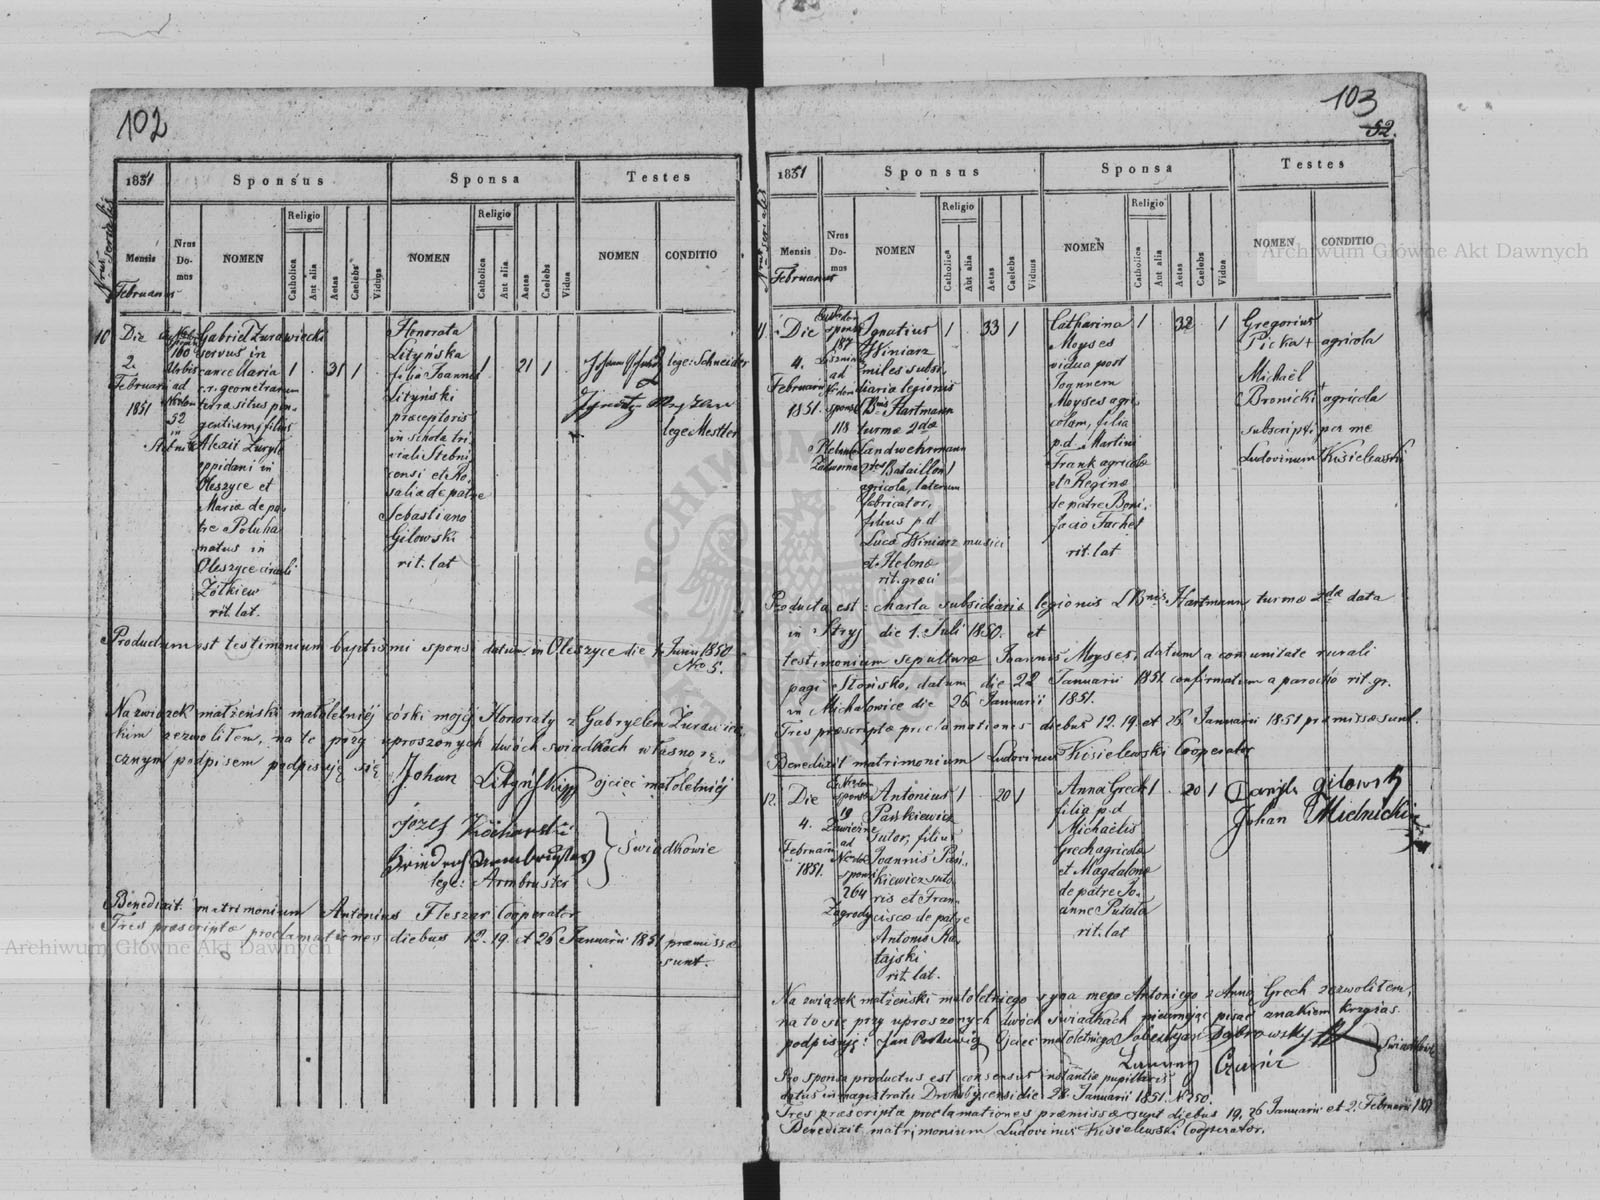 102
1851
Sponsus
Sponsa
Testes
Nrus serialis
Mensis
Februarius
Nrus Domus
NOMEN
Religio
Catholica
Aut alia
Aetas
Caelebs
Viduus
NOMEN
Religio
Catholica
Aut alia
Aetas
Caelebs
Vidua
NOMEN
CONDITIO
10
Die
2.
Februarii
1851
160
Urbis
ad
52
in
Stebnik
Gabriel Żurawiecki
servus in
cancellaria
c.r. geometrarum
filius
Alexii
oppidani in
Oleszyce et
Mariæ de pa-
tre Poluha
natus in
Oleszyce circuli
Żółkiew
rit. lat.
1
31
1
Honorata
Lityńska
filia Joannis
Lityński
præceptoris
in schola tri-
viali Stebni-
censi et Ro-
salia de patre
Sebastiano
Gilowski
rit. lat
1
21
1
lege: Schneider
lege Mestler
Productum est testimonium baptismi sponsi datum in Oleszyce die 4 Junii 1850
Nro 5.
Na związek małżeński małoletniéj córki mojéj Honoraty z Gabryelem Żurawiec-
kim zezwoliłem, na to przy uproszonych dwóch świadkach własnorę-
cznym podpisem podpisuję się
Johan Lityńsky ojciec małoletniéj
Jozef
lege: Armbruster
Świadkowie
Benedixit matrimonium Antonius Fleszar Cooperator
Tres præscriptæ proclamationes diebus 12. 19. et 26 Januarii 1851 præmissæ
sunt.
103
52.
1851
Sponsus
Sponsa
Testes
Nrus serialis
Mensis
Februarius
Nrus Domus
NOMEN
Religio
Catholica
Aut alia
Aetas
Caelebs
Viduus
NOMEN
Religio
Catholica
Aut alia
Aetas
Caelebs
Vidua
NOMEN
CONDITIO
11.
Die
4.
Februarii
1851.
sponsi
187
ad
sponsæ
118
Zadwórna
Ignatius
Winiarz
miles subsi-
diariæ legionis
L. Bnis Hartmann
turmæ 2dæ
Landwehrmann
Bataillon
agricola, laterum
fabricator,
filius p.d
Lucæ Winiarz musici
et Helenæ
rit. græci
1
33
1
Catharina
Moyses
vidua post
Joannem
Moyses agri-
colam, filia
p.d. Martini
Frank agricolæ
et Reginæ
de patre Boni-
facio Fachet
rit. lat
1
32
1
Gregorius
Picka + agricola
Michaël
Bronicki + agricola
subscripti per me
Ludovinum Kisielewski
Producta est: charta subsidiariæ legionis L Bnis Hartmann turmæ 2dæ data
in Stryj die 1. Juli 1850. et
testimonium sepulturæ Joannis Moyses, datum a communitate rurali
pagi Stońsko, datum die 22 Januarii 1851 confirmatum a parocho rit. gr.
in Michałowice die 26 Januarii 1851.
Tres præscriptæ proclamationes diebus 12. 19. et 26 Januarii 1851 præmissæ sunt.
Benedixit matrimonium Ludovinus Kisielewski Cooperator
12.
Die
4.
Februarii
1851.
sponsi
19
Zawiezne
ad
sponsæ
264
Zagrody
Antonius
Paszkiewicz
sutor, filius
Joannis Pasz-
kiewicz suto-
ris et Fran-
ciscæ de patre
Antonio Ra-
tajski
rit. lat.
1
20
1
Anna Grech
filia p.d
Michaëlis
Grech agricolæ
et Magdalenæ
de patre Jo-
anne Putała
rit. lat
1
20
1
Danyła Gilowsky
Johan Mielnicki
Na związek małżeński małoletniego syna mego Antoniego z Anną Grech zezwoliłem,
na to się przy uproszonych dwóch świadkach nieumiejąc pisać znakiem krzyża
podpisuję: Jan Paszkiewicz Ojciec małoletniego Sobestyan Dąbrowsky
Świadkowie
Pro sponsa productus est consensus instantiæ pupillaris
datus in magistratu Drohobycensi die 28. Januarii 1851. N. 250.
Tres præscriptæ proclamationes præmissæ sunt diebus 19, 26 Januarii et 2. Februarii 1851
Benedixit matrimonium Ludovinus Kisielewski Cooperator.
Archiwum Główne Akt Dawnych
Archiwum Główne Akt Dawnych